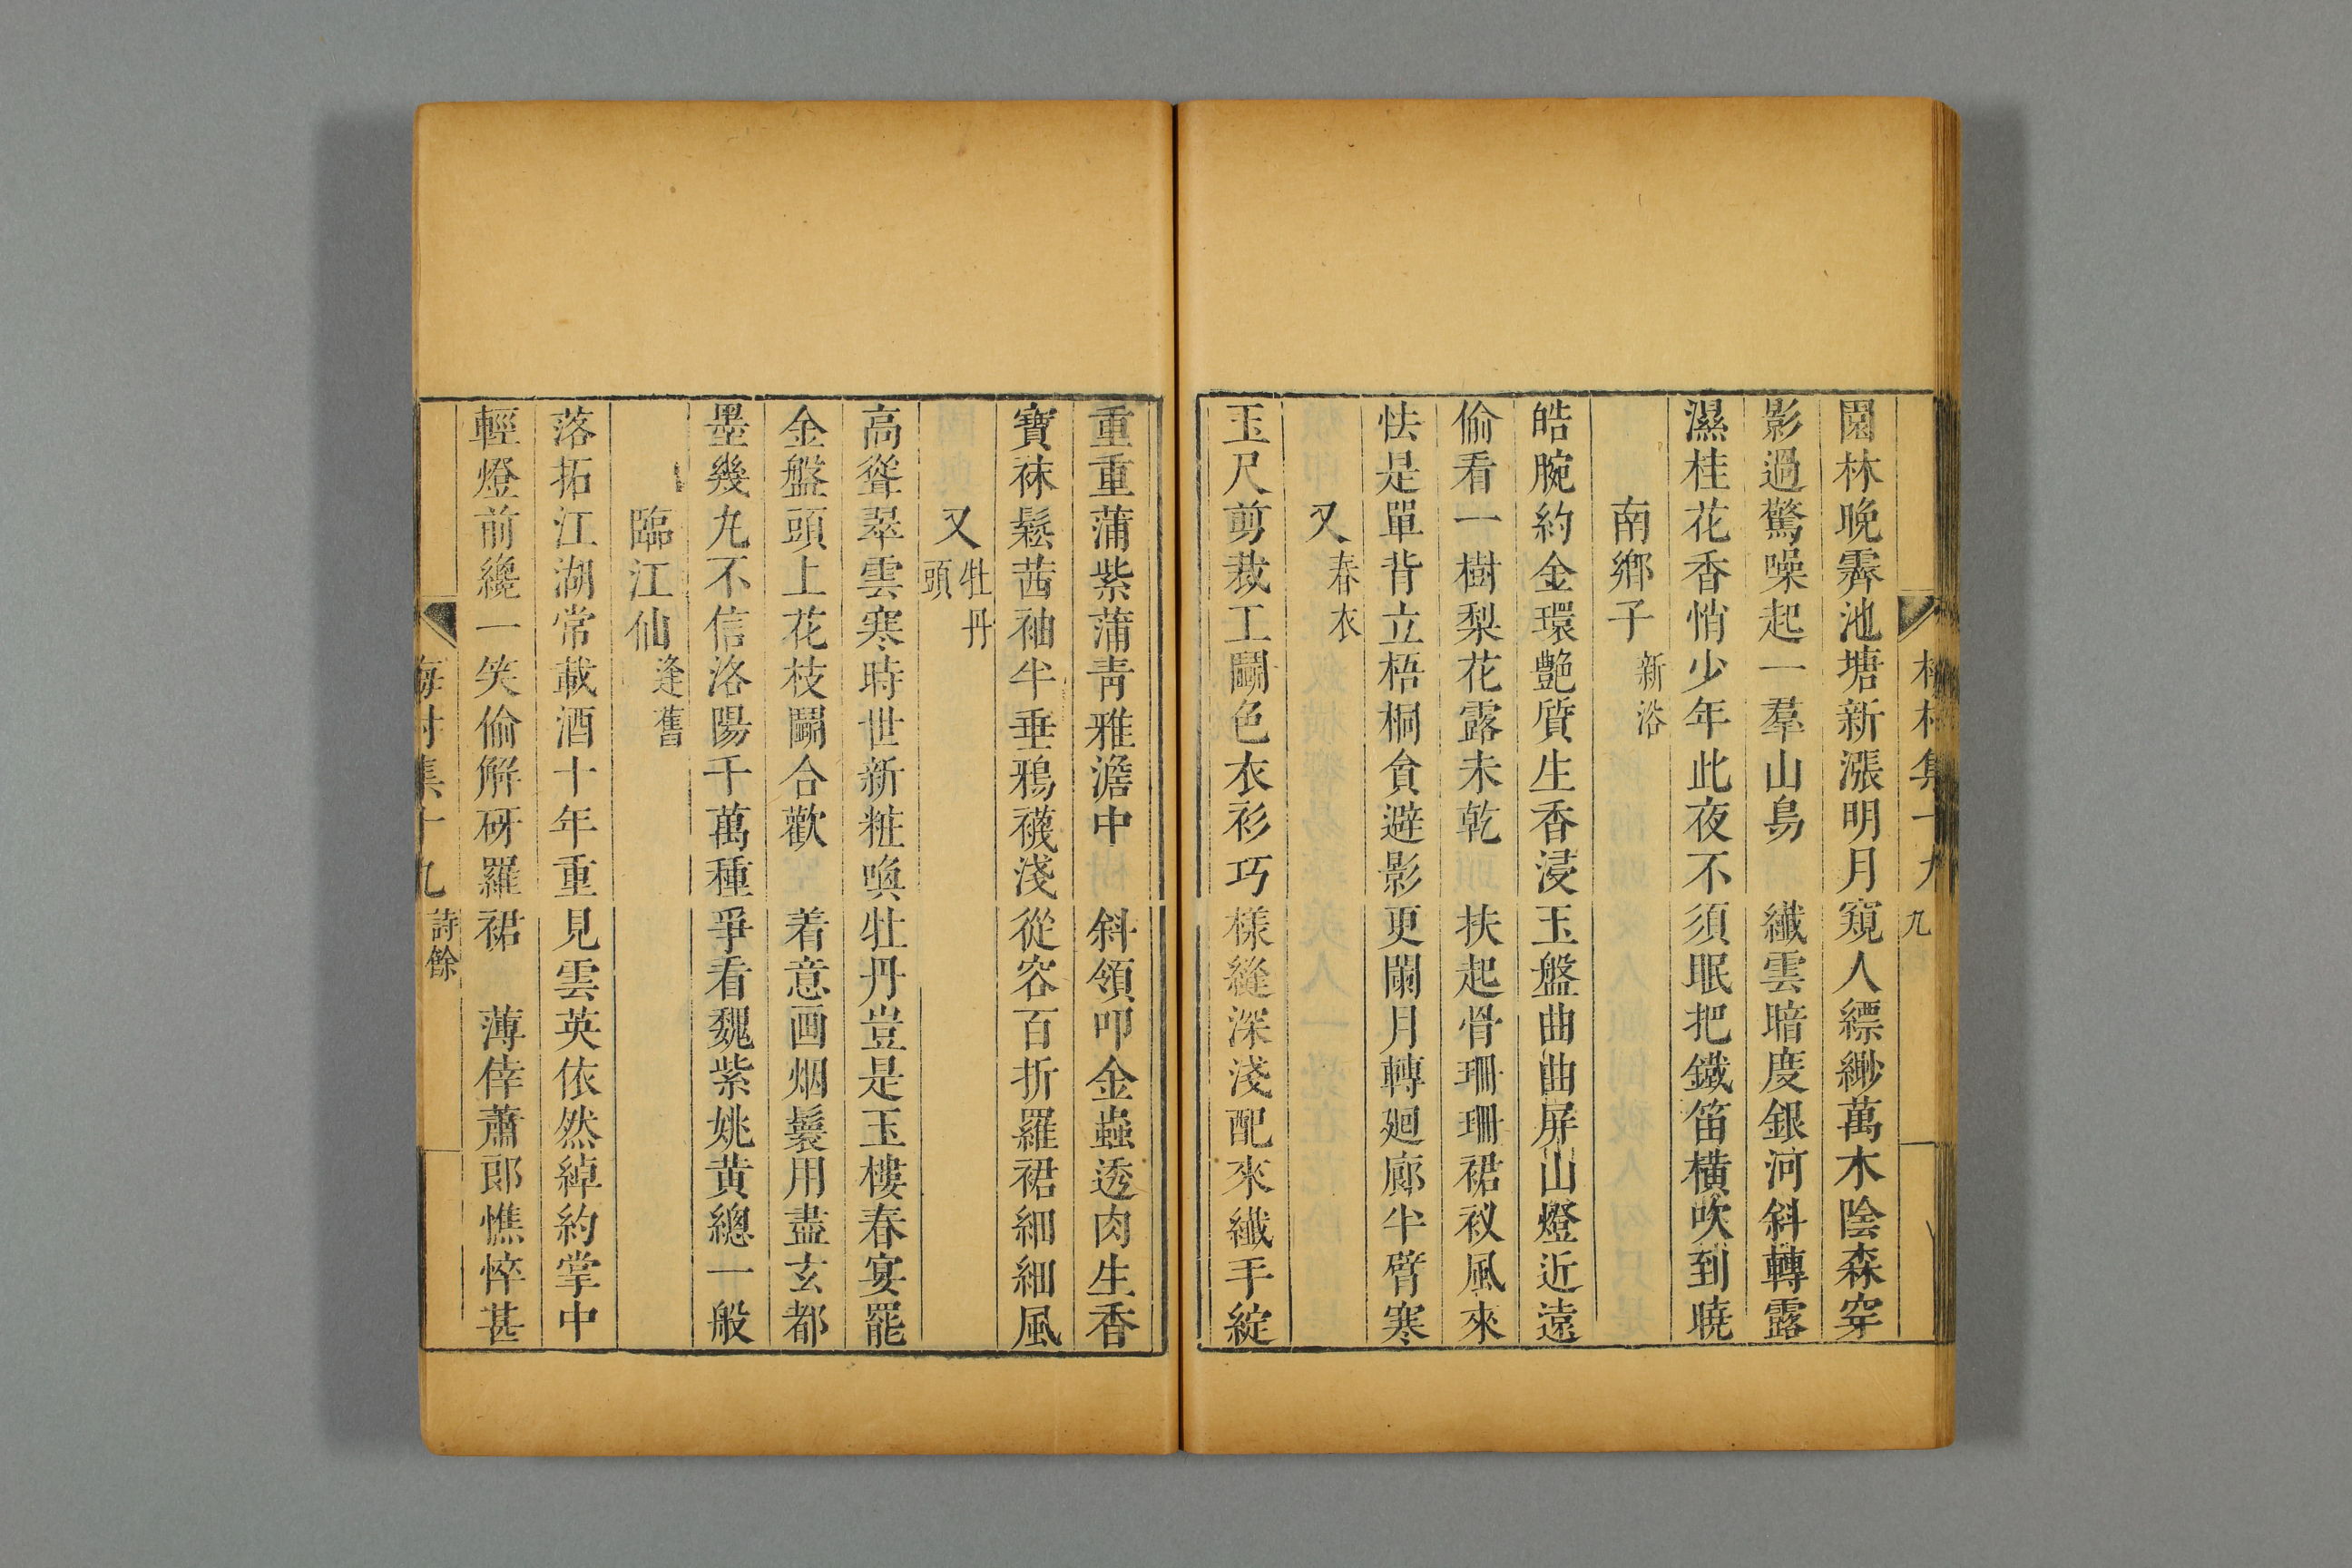 梅村集十九 九
園林晚霽池塘新漲明月窺人縹緲萬木陰森穿
影過驚噪起一羣山鳥 纖雲暗度銀河斜轉露
濕桂花香悄少年此夜不須眠把鐵笛橫吹到曉
南鄉子 新浴
皓腕約金環艷質生香浸玉盤曲曲屏山燈近遠
偷看一樹梨花露未乾 扶起骨珊珊裙衩風來
怯是單背立梧桐貪避影更闌月轉廻廊半臂寒
又 春衣
玉尺剪裁工鬭色衣衫巧樣縫深淺配來纖手綻
重重蒲紫蒲靑雅澹中 斜領叩金蟲透肉生香
寶袜鬆茜袖半垂鴉襪淺從容百折羅裙細細風
又 牡丹頭
高聳翠雲寒時世新粧喚牡丹豈是玉樓春宴罷
金盤頭上花枝鬭合歡 着意画烟鬟用盡玄都
墨幾丸不信洛陽千萬種爭看魏紫姚黃總一般
臨江仙 逢舊
落拓江湖常載酒十年重見雲英依然綽約掌中
輕燈前纔一笑偷解砑羅裙 薄倖蕭郎憔悴甚
梅村集十九 詩餘